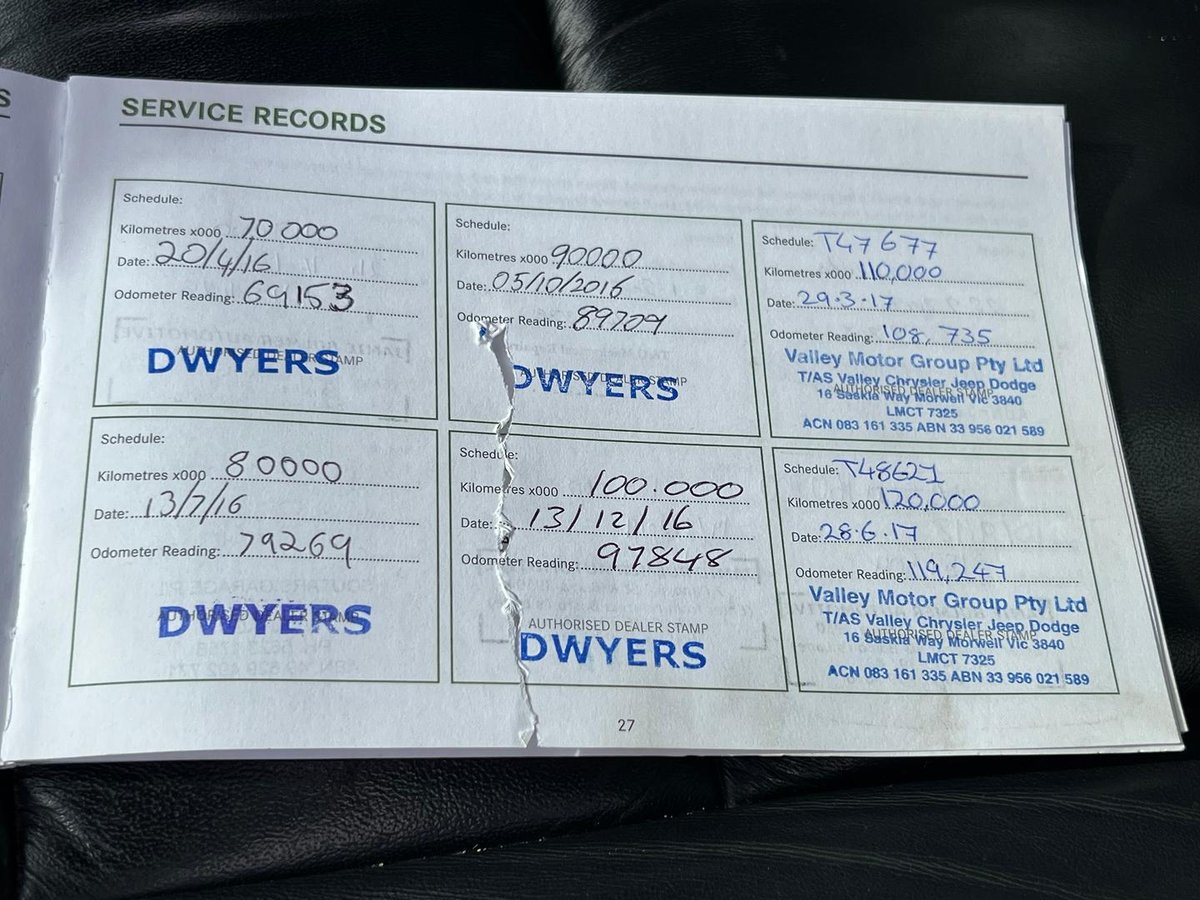 S
SERVICE RECORDS
Schedule:
Kilometres x000 70 000
Date: 20/4/16
Odometer Reading: 69153
AUTHORISED DEALER STAMP
DWYERS
Schedule:
Kilometres x000 80000
Date: 13/7/16
Odometer Reading: 79269
AUTHORISED DEALER STAMP
DWYERS
Schedule:
Kilometres x000 90000
Date: 05/10/2016
Odometer Reading: 89709
AUTHORISED DEALER STAMP
DWYERS
Schedule:
Kilometres x000 100.000
Date: 13/12/16
Odometer Reading: 97848
AUTHORISED DEALER STAMP
DWYERS
Schedule: T47677
Kilometres x000 110,000
Date: 29.3.17
Odometer Reading: 108,735
Valley Motor Group Pty Ltd
T/AS Valley Chrysler Jeep Dodge
AUTHORISED DEALER STAMP
16 Saskia Way Morwell Vic 3840
LMCT 7325
ACN 083 161 335 ABN 33 956 021 589
Schedule: T48621
Kilometres x000 120,000
Date: 28.6.17
Odometer Reading: 119,247
Valley Motor Group Pty Ltd
T/AS Valley Chrysler Jeep Dodge
AUTHORISED DEALER STAMP
16 Saskia Way Morwell Vic 3840
LMCT 7325
ACN 083 161 335 ABN 33 956 021 589
27